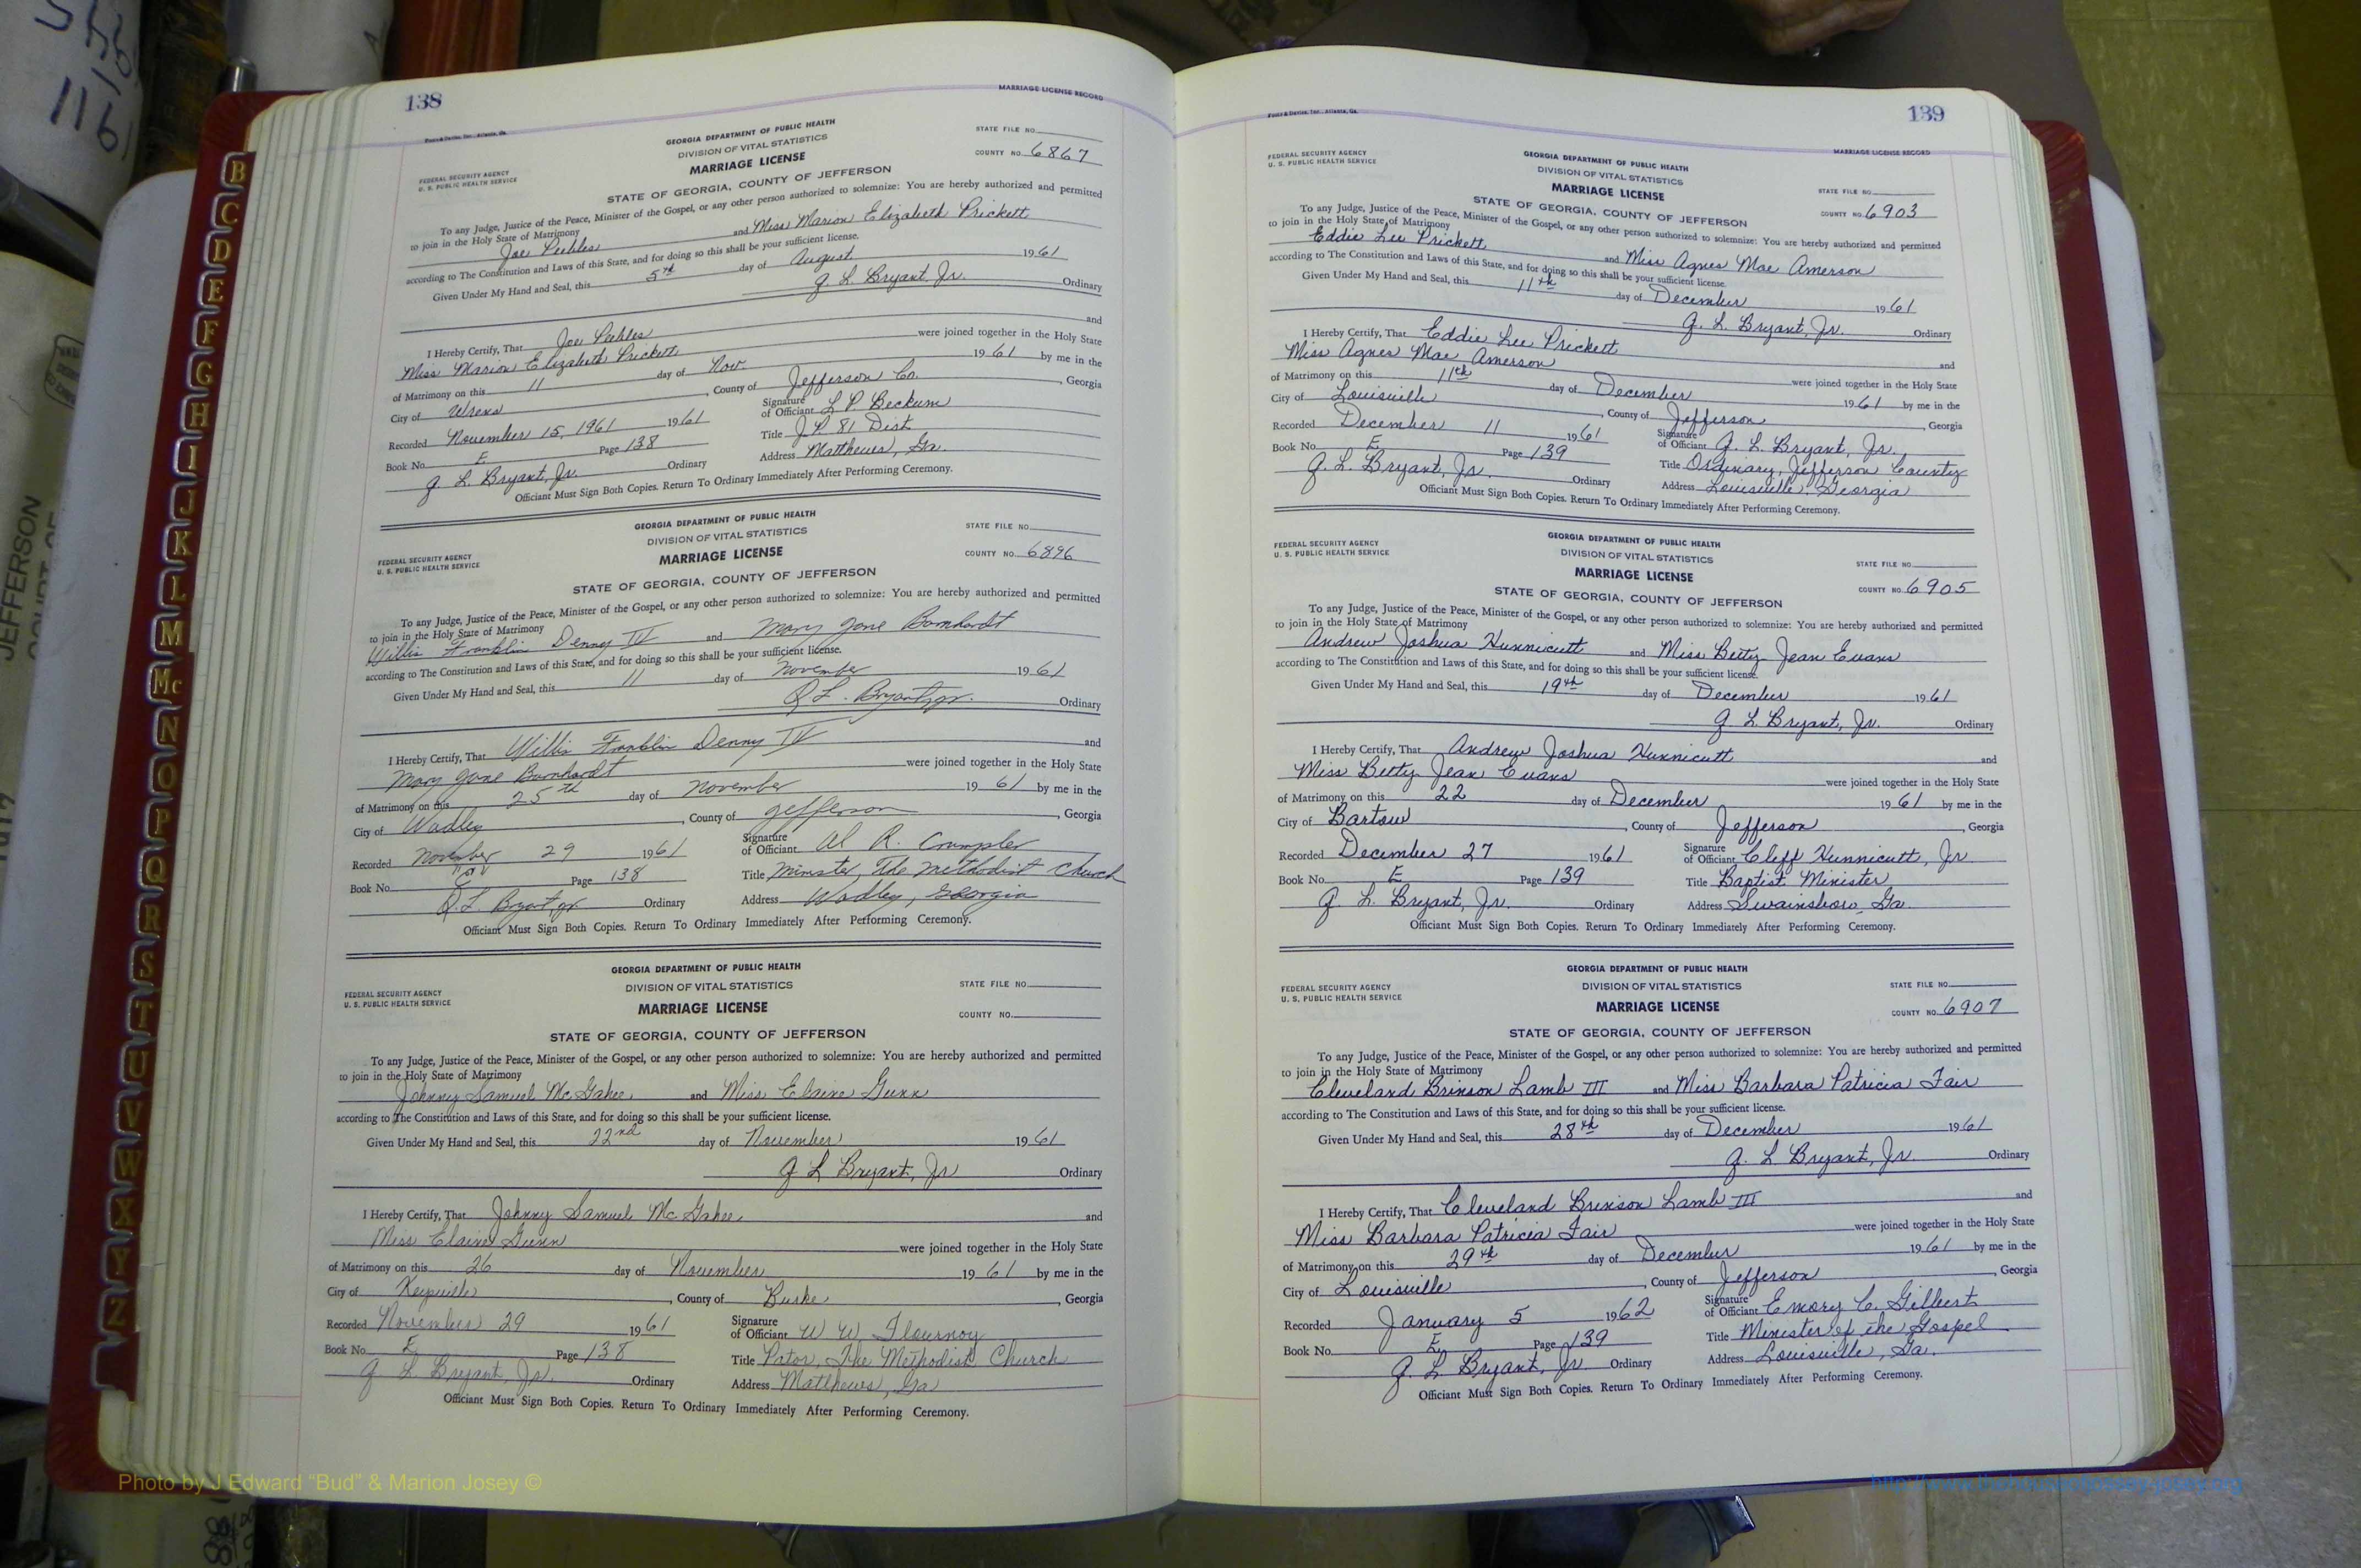 138
MARRIAGE LICENSE RECORD
Foote & Davies, Inc., Atlanta, Ga.
GEORGIA DEPARTMENT OF PUBLIC HEALTH
DIVISION OF VITAL STATISTICS
MARRIAGE LICENSE
STATE OF GEORGIA, COUNTY OF JEFFERSON
FEDERAL SECURITY AGENCY
U. S. PUBLIC HEALTH SERVICE
STATE FILE NO.
COUNTY NO. 6867
To any Judge, Justice of the Peace, Minister of the Gospel, or any other person authorized to solemnize: You are hereby authorized and permitted
to join in the Holy State of Matrimony
Joe Peebles and Miss Marion Elizabeth Prickett
according to The Constitution and Laws of this State, and for doing so this shall be your sufficient license.
Given Under My Hand and Seal, this 5th day of August 1961
Q. L. Bryant, Jr. Ordinary
I Hereby Certify, That Joe Peebles and
Miss Marion Elizabeth Prickett were joined together in the Holy State
of Matrimony on this 11 day of Nov. 1961 by me in the
City of Wrens, County of Jefferson Co., Georgia
Recorded November 15, 1961 1961 Signature of Officiant L P Beckum
Book No. E Page 138 Title J.P. 81 Dist
Q. L. Bryant, Jr. Ordinary Address Matthews, Ga.
Officiant Must Sign Both Copies. Return To Ordinary Immediately After Performing Ceremony.
GEORGIA DEPARTMENT OF PUBLIC HEALTH
DIVISION OF VITAL STATISTICS
MARRIAGE LICENSE
STATE OF GEORGIA, COUNTY OF JEFFERSON
FEDERAL SECURITY AGENCY
U. S. PUBLIC HEALTH SERVICE
STATE FILE NO.
COUNTY NO. 6896
To any Judge, Justice of the Peace, Minister of the Gospel, or any other person authorized to solemnize: You are hereby authorized and permitted
to join in the Holy State of Matrimony
Willis Franklin Denny IV and Mary Jane Barnhardt
according to The Constitution and Laws of this State, and for doing so this shall be your sufficient license.
Given Under My Hand and Seal, this 11 day of November 1961
Q. L. Bryant, Jr. Ordinary
I Hereby Certify, That Willis Franklin Denny IV and
Mary Jane Barnhardt were joined together in the Holy State
of Matrimony on this 25th day of November 1961 by me in the
City of Wadley, County of Jefferson, Georgia
Recorded November 29 1961 Signature of Officiant Al R. Crumpler
Book No. "E" Page 138 Title Minster, The Methodist Church
Q. L. Bryant Jr. Ordinary Address Wadley, Georgia
Officiant Must Sign Both Copies. Return To Ordinary Immediately After Performing Ceremony.
GEORGIA DEPARTMENT OF PUBLIC HEALTH
DIVISION OF VITAL STATISTICS
MARRIAGE LICENSE
STATE OF GEORGIA, COUNTY OF JEFFERSON
FEDERAL SECURITY AGENCY
U. S. PUBLIC HEALTH SERVICE
STATE FILE NO.
COUNTY NO.
To any Judge, Justice of the Peace, Minister of the Gospel, or any other person authorized to solemnize: You are hereby authorized and permitted
to join in the Holy State of Matrimony
Johnny Samuel McGahee and Miss Elaine Gunn
according to The Constitution and Laws of this State, and for doing so this shall be your sufficient license.
Given Under My Hand and Seal, this 22nd day of November 1961
Q L Bryant, Jr Ordinary
I Hereby Certify, That Johnny Samuel McGahee and
Miss Elaine Gunn were joined together in the Holy State
of Matrimony on this 26 day of November 1961 by me in the
City of Keysville, County of Burke, Georgia
Recorded November 29 1961 Signature of Officiant W W Flournoy
Book No. E Page 138 Title Pator, The Methodist Church
Q L Bryant, Jr. Ordinary Address Matthews, Ga
Officiant Must Sign Both Copies. Return To Ordinary Immediately After Performing Ceremony.
139
Foote & Davies, Inc., Atlanta, Ga.
MARRIAGE LICENSE RECORD
FEDERAL SECURITY AGENCY
U. S. PUBLIC HEALTH SERVICE
GEORGIA DEPARTMENT OF PUBLIC HEALTH
DIVISION OF VITAL STATISTICS
MARRIAGE LICENSE
STATE OF GEORGIA, COUNTY OF JEFFERSON
STATE FILE NO.
COUNTY NO. 6903
To any Judge, Justice of the Peace, Minister of the Gospel, or any other person authorized to solemnize: You are hereby authorized and permitted
to join in the Holy State of Matrimony
Eddie Lee Prickett and Miss Agnes Mae Amerson
according to The Constitution and Laws of this State, and for doing so this shall be your sufficient license.
Given Under My Hand and Seal, this 11th day of December 1961
Q. L. Bryant, Jr. Ordinary
I Hereby Certify, That Eddie Lee Prickett
Miss Agnes Mae Amerson and
of Matrimony on this 11th day of December were joined together in the Holy State
City of Louisville, County of Jefferson 1961 by me in the
Georgia
Recorded December 11 1961 Signature of Officiant Q. L. Bryant, Jr.
Book No. E Page 139 Title Ordinary, Jefferson County
Q. L. Bryant, Jr. Ordinary Address Louisville, Georgia
Officiant Must Sign Both Copies. Return To Ordinary Immediately After Performing Ceremony.
GEORGIA DEPARTMENT OF PUBLIC HEALTH
DIVISION OF VITAL STATISTICS
MARRIAGE LICENSE
STATE OF GEORGIA, COUNTY OF JEFFERSON
FEDERAL SECURITY AGENCY
U. S. PUBLIC HEALTH SERVICE
STATE FILE NO.
COUNTY NO. 6905
To any Judge, Justice of the Peace, Minister of the Gospel, or any other person authorized to solemnize: You are hereby authorized and permitted
to join in the Holy State of Matrimony
Andrew Joshua Hunnicutt and Miss Betty Jean Evans
according to The Constitution and Laws of this State, and for doing so this shall be your sufficient license.
Given Under My Hand and Seal, this 19th day of December 1961
Q. L. Bryant, Jr. Ordinary
I Hereby Certify, That Andrew Joshua Hunnicutt and
Miss Betty Jean Evans were joined together in the Holy State
of Matrimony on this 22 day of December 1961 by me in the
City of Bartow, County of Jefferson, Georgia
Recorded December 27 1961 Signature of Officiant Cleff Hunnicutt, Jr
Book No. E Page 139 Title Baptist Minister
Q. L. Bryant, Jr. Ordinary Address Swainsboro, Ga.
Officiant Must Sign Both Copies. Return To Ordinary Immediately After Performing Ceremony.
GEORGIA DEPARTMENT OF PUBLIC HEALTH
DIVISION OF VITAL STATISTICS
MARRIAGE LICENSE
STATE OF GEORGIA, COUNTY OF JEFFERSON
FEDERAL SECURITY AGENCY
U. S. PUBLIC HEALTH SERVICE
STATE FILE NO.
COUNTY NO. 6907
To any Judge, Justice of the Peace, Minister of the Gospel, or any other person authorized to solemnize: You are hereby authorized and permitted
to join in the Holy State of Matrimony
Cleveland Brinson Lamb III and Miss Barbara Patricia Fair
according to The Constitution and Laws of this State, and for doing so this shall be your sufficient license.
Given Under My Hand and Seal, this 28th day of December 1961
Q. L Bryant, Jr. Ordinary
I Hereby Certify, That Cleveland Brinson Lamb III and
Miss Barbara Patricia Fair were joined together in the Holy State
of Matrimony on this 29th day of December 1961 by me in the
City of Louisville, County of Jefferson, Georgia
Recorded January 5 1962 Signature of Officiant Emory C. Gilbert
Book No. E Page 139 Title Minister of the Gospel
Q. L. Bryant, Jr Ordinary Address Louisville, Ga.
Officiant Must Sign Both Copies. Return To Ordinary Immediately After Performing Ceremony.
B
C
D
E
F
G
H
I
J
K
L
M
Mc
N
O
P
Q
R
S
T
U
V
W
X
Y
Z
JEFFERSON
Photo by J Edward "Bud" & Marion Josey ©